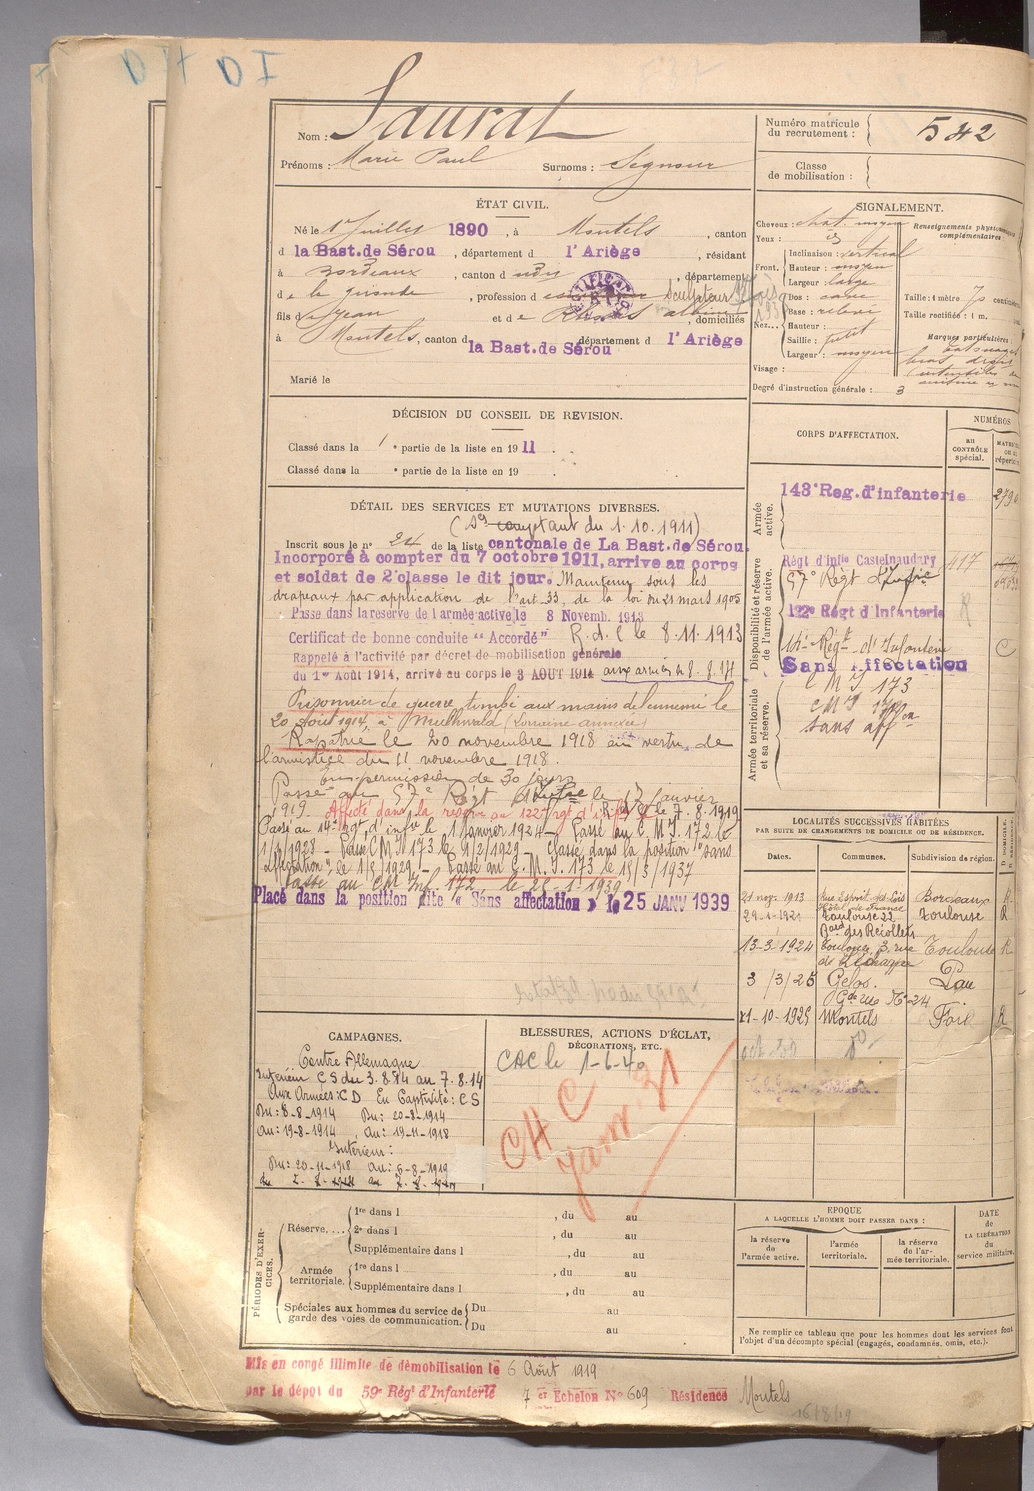 Nom : Saurat
Prénoms : Marie Paul Surnoms : Segnour
Numéro matricule du recrutement : 542
Classe de mobilisation :
ÉTAT CIVIL.
Né le 1er Juillet 1890, à Montels, canton
d la Bast. de Sérou, département d l'Ariège, résidant
à Bordeaux, canton d udis, département
d e la gironde, profession d sculpteur
fils d e Jean et d e albine, domiciliés
à Montels, canton d la Bast. de Sérou département d l'Ariège
Marié le
SIGNALEMENT.
Cheveux : chat. moyen
Yeux :
Front. Inclinaison : vertical
Hauteur : moyen
Largeur : large
Nez... Dos : cave
Base : relevé
Hauteur :
Saillie : petit
Largeur : moyen
Visage :
Renseignements physionomiques complémentaires :
Taille : 1 mètre 70 centimètres
Taille rectifiée : 1 m.
Marques particulières :
tatouage bras droit
Degré d'instruction générale : 3
DÉCISION DU CONSEIL DE REVISION.
Classé dans la 1e partie de la liste en 1911.
Classé dans la e partie de la liste en 19 .
CORPS D'AFFECTATION.
NUMÉROS
au CONTRÔLE spécial.
Armée active.
143e Reg. d'infanterie
Disponibilité et réserve de l'armée active.
Régt d'infie Castelnaudary 417
57e Régt d'Infie
122e Régt d'Infanterie R
14e Régt d'Infanterie C
Sans Affectation
Armée territoriale et sa réserve.
C M I 173
C M I 172
sans affon
DÉTAIL DES SERVICES ET MUTATIONS DIVERSES.
(Sg comptant du 1.10.1911)
Inscrit sous le n° 24 de la liste cantonale de La Bast. de Sérou.
Incorporé à compter du 7 octobre 1911, arrive au corps
et soldat de 2e classe le dit jour. Maintenu sous les
drapeaux par application de l'art. 33, de la loi du 21 mars 1905
Passe dans la reserve de l'armée active, le 8 Novemb. 1913
Certificat de bonne conduite "Accordé" R.d.C le 8.11.1913
Rappelé à l'activité par décret de mobilisation générale
du 1er Août 1914, arrivé au corps le 3 AOUT 1914 aux armées le 8.8.14
Prisonnier de guerre tombé aux mains de l'ennemi le
20 Août 1914, à Mulhwald (Lorraine annexée)
Rapatrié le 20 novembre 1918 en vertu de
l'armistice du 11 novembre 1918.
En permission de 30 jours
Passé au 57e Régt d'Infie le 13 Janvier
1919 Affecté dans la réserve au 122e rgt d'infie R.d.C le 7.8.1919
Passé au 14e rgt d'infie le 1 Janvier 1924 - Passé au C.M.I. 172 le
1/5/1928 - Passé C M I 173 le 9/2/1929 - Classé dans la position "sans
affectation", le 1/5/1929 - Passé au C.M.I. 173 le 15/3/1937
Passé au CM Inf. 172 le 25-1-1939
Placé dans la position dite « Sans affectation » le 25 JANV 1939
LOCALITÉS SUCCESSIVES HABITÉES
PAR SUITE DE CHANGEMENTS DE DOMICILE OU DE RÉSIDENCE.
Dates. Communes. Subdivision de région.
21 nov. 1913 Rue Esprit des Lois Hôtel de France Bordeaux R
29-1-1921 Toulouse 22 Bard des Récollets Toulouse R
13-3-1924 Toulouse, 3, rue Toulouse R
3/3/25 Gelos. Gde rue No 24 Pau
21-10-1925 Montels Foix R
CAMPAGNES.
Contre Allemagne
Intérieur CS du 3.8.14 au 7.8.14
Aux Armées : CD En Captivité : CS
Du : 8-8-1914 Du : 20-8-1914
au : 19-8-1914 au : 19-11-1918
Intérieur :
Du : 20-11-1918 au : 6-8-1919
BLESSURES, ACTIONS D'ÉCLAT, DÉCORATIONS, ETC.
CAC le 1-6-40
CHC
Janv. 31
PÉRIODES D'EXERCICES.
Réserve.... 1re dans l , du au
2e dans l , du au
Supplémentaire dans l , du au
Armée territoriale. 1re dans l , du au
Supplémentaire dans l , du au
Spéciales aux hommes du service de garde des voies de communication. Du au
Du au
EPOQUE
A LAQUELLE L'HOMME DOIT PASSER DANS :
la réserve de l'armée active.
l'armée territoriale.
la réserve de l'armée territoriale.
DATE de LA LIBÉRATION du service militaire.
Ne remplir ce tableau que pour les hommes dont les services font
l'objet d'un décompte spécial (engagés, condamnés, omis, etc.).
Mis en congé illimité de démobilisation le 6 Août 1919
par le dépôt du 59e Régt d'Infanterie 7 er Echelon No 609 Résidence Montels
16/8/19